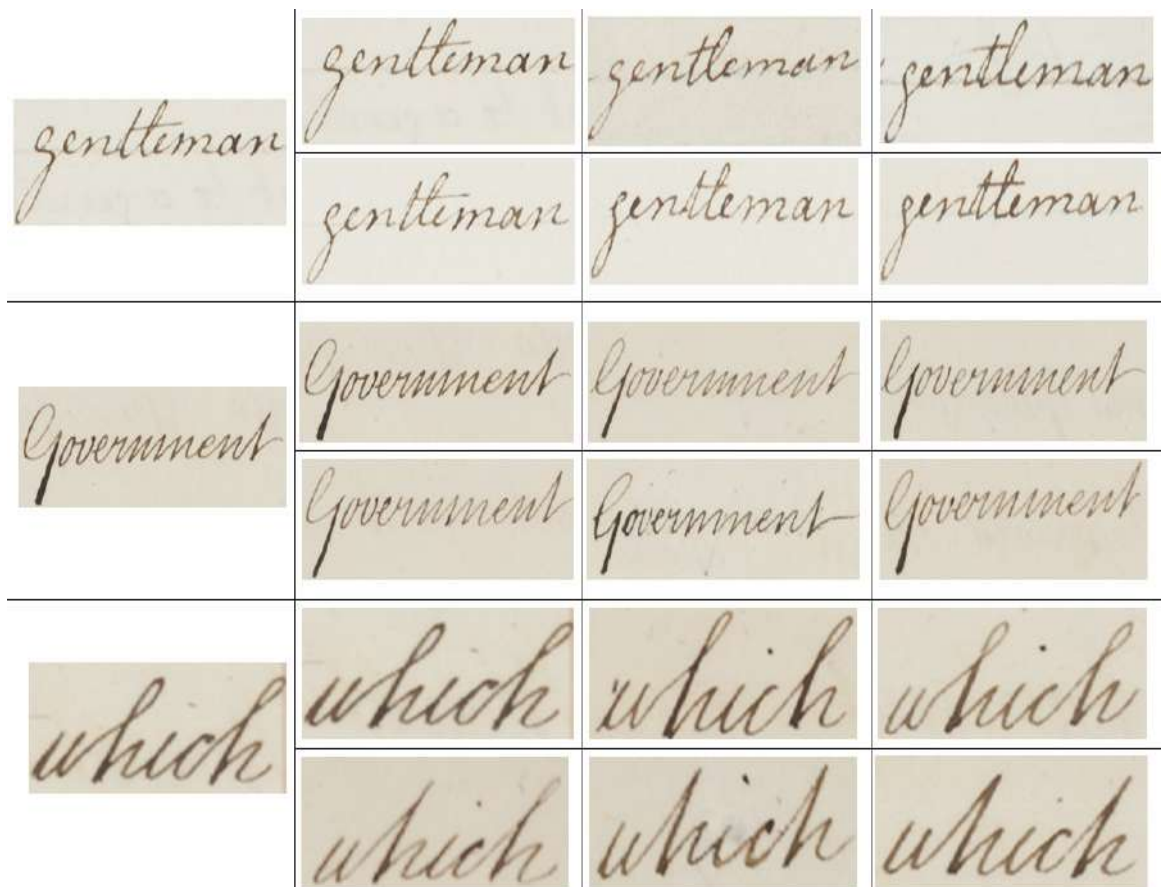 gentleman gentleman gentleman
gentleman
gentleman gentleman gentleman
Government Government Government
Government
Government Government Government
which which which
which
which which which